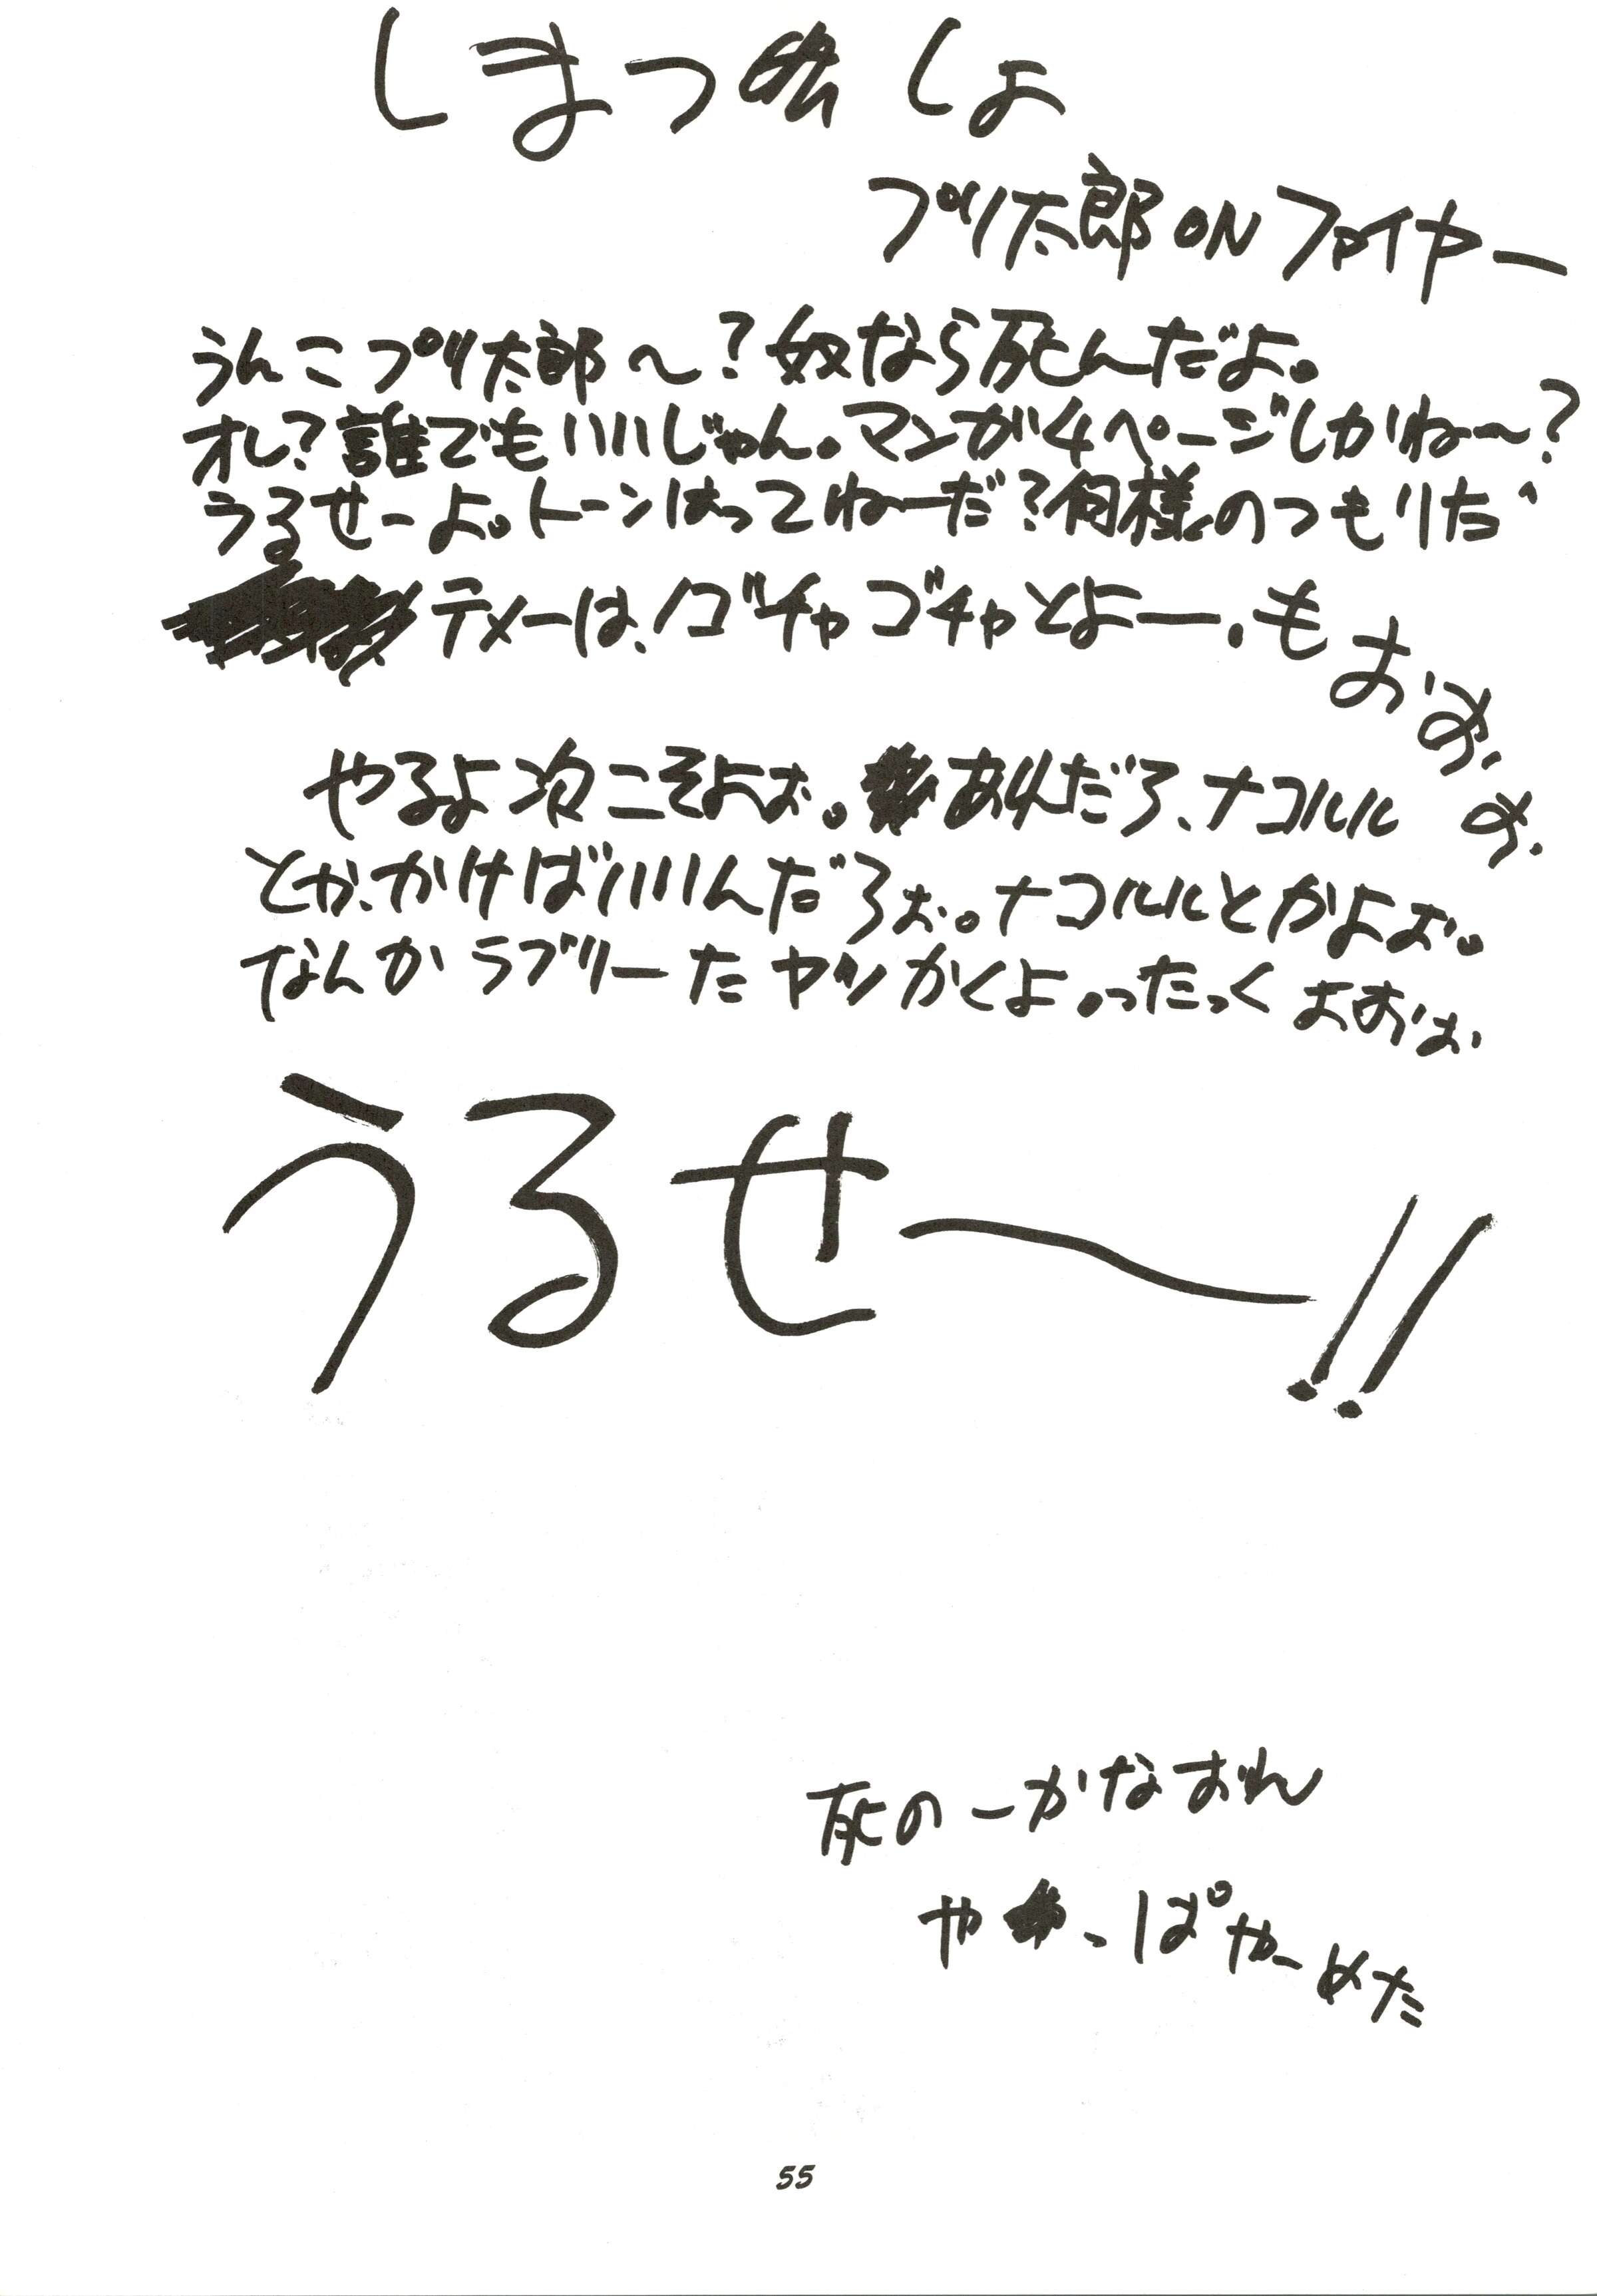 しまつしょ
プリ太郎ONファイヤー
うんこプリ太郎～?奴なら死んだよ。
オレ?誰でもいいじゃん。マンガ4ページしかね～?
うるせーよ。トーンはってねーだ?何様のつもりだ
テメーは、ゴチャゴチャとよー。もおぉ、ぉ、
やるよ次こそよぉ。あれだろ、ナコルル
とか、かけばいいんだろぉ。ナコルルとかよぉ。
なんかラブリーなヤツかくよ。ったっくよおぉ
うるせ～!!
死のーかなおれ
やっぱやーめた
55